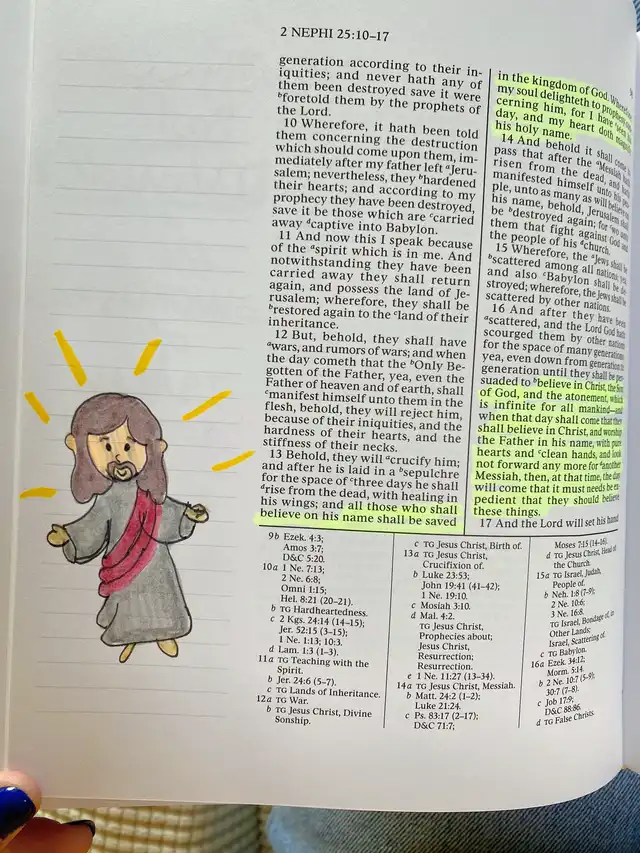 2 NEPHI 25:10–17
generation according to their in-
iquities; and never hath any of
them been destroyed save it were
bforetold them by the prophets of
the Lord.
10 Wherefore, it hath been told
them concerning the destruction
which should come upon them, im-
mediately after my father left aJeru-
salem; nevertheless, they bhardened
their hearts; and according to my
prophecy they have been destroyed,
save it be those which are ccarried
away dcaptive into Babylon.
11 And now this I speak because
of the aspirit which is in me. And
notwithstanding they have been
carried away they shall return
again, and possess the land of Je-
rusalem; wherefore, they shall be
brestored again to the cland of their
inheritance.
12 But, behold, they shall have
awars, and rumors of wars; and when
the day cometh that the bOnly Be-
gotten of the Father, yea, even the
Father of heaven and of earth, shall
cmanifest himself unto them in the
flesh, behold, they will reject him,
because of their iniquities, and the
hardness of their hearts, and the
stiffness of their necks.
13 Behold, they will acrucify him;
and after he is laid in a bsepulchre
for the space of cthree days he shall
drise from the dead, with healing in
his wings; and all those who shall
believe on his name shall be saved
in the kingdom of God.
my soul delighteth to
cerning him, for I have
day, and my heart doth
his holy name.
14 And behold it shall come
pass that after the aMessiah
risen from the dead, and
manifested himself unto his
ple, unto as many as will believe
his name, behold, Jerusalem
be bdestroyed again; for
them that fight against God and
the people of his dchurch.
15 Wherefore, the aJews shall be
bscattered among all nations; yea,
and also cBabylon shall be de-
stroyed; wherefore, the Jews shall be
scattered by other nations.
16 And after they have been
ascattered, and the Lord God hath
scourged them by other nations
for the space of many generations,
yea, even down from generation to
generation until they shall be per-
suaded to bbelieve in Christ, the Son
of God, and the atonement, which
is infinite for all mankind—and
when that day shall come that they
shall believe in Christ, and worship
the Father in his name, with pure
hearts and cclean hands, and look
not forward any more for danother
Messiah, then, at that time, the day
will come that it must needs be ex-
pedient that they should believe
these things.
17 And the Lord will set his hand
9b Ezek. 4:3;
Amos 3:7;
D&C 5:20.
10a 1 Ne. 7:13;
2 Ne. 6:8;
Omni 1:15;
Hel. 8:21 (20–21).
b TG Hardheartedness.
c 2 Kgs. 24:14 (14–15);
Jer. 52:15 (3–15);
1 Ne. 1:13; 10:3.
d Lam. 1:3 (1–3).
11a TG Teaching with the
Spirit.
b Jer. 24:6 (5–7).
c TG Lands of Inheritance.
12a TG War.
b TG Jesus Christ, Divine
Sonship.
c TG Jesus Christ, Birth of.
13a TG Jesus Christ,
Crucifixion of.
b Luke 23:53;
John 19:41 (41–42);
1 Ne. 19:10.
c Mosiah 3:10.
d Mal. 4:2.
TG Jesus Christ,
Prophecies about;
Jesus Christ,
Resurrection;
Resurrection.
e 1 Ne. 11:27 (13–34).
14a TG Jesus Christ, Messiah.
b Matt. 24:2 (1–2);
Luke 21:24.
c Ps. 83:17 (2–17);
D&C 71:7;
Moses 7:15 (14–16).
d TG Jesus Christ, Head of
the Church.
15a TG Israel, Judah,
People of.
b Neh. 1:8 (7–9);
2 Ne. 10:6;
3 Ne. 16:8.
TG Israel, Bondage of, in
Other Lands;
Israel, Scattering of.
c TG Babylon.
16a Ezek. 34:12;
Morm. 5:14.
b 2 Ne. 10:7 (5–9);
30:7 (7–8).
c Job 17:9;
D&C 88:86.
d TG False Christs.